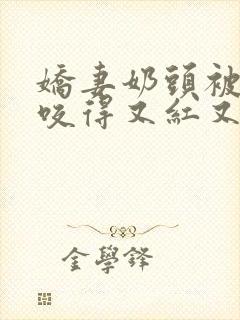 嬌妻奶頭被
咬得又紅又
金學鋒